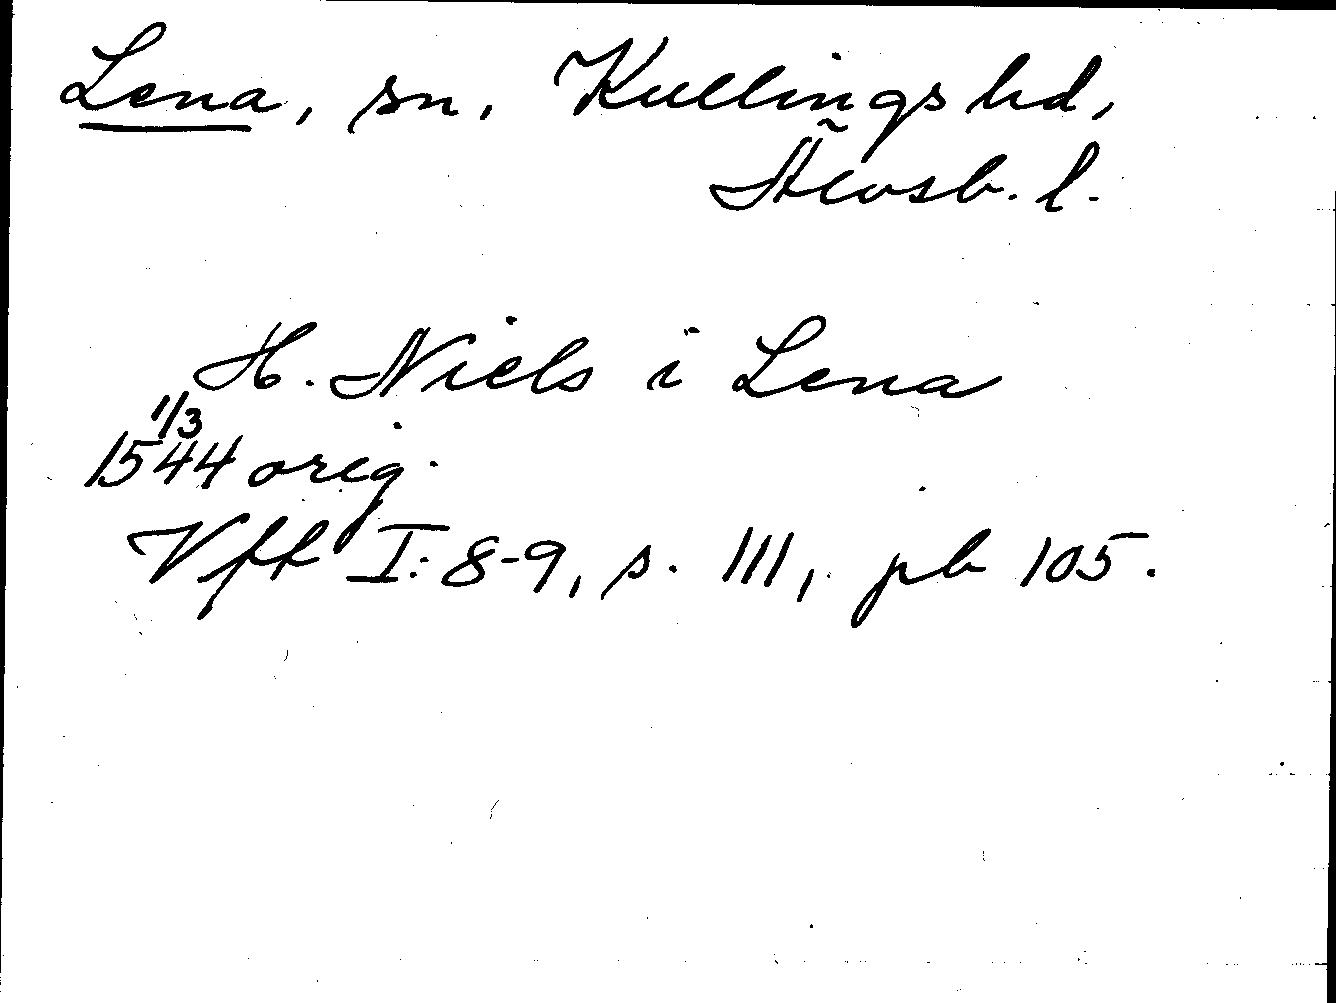 Lena, sn, Kullings hd,
Älvsb. l.
H. Niels i Lena
1/3
1544 orig.
Vfft I: 8-9, s. 111, pb 105.